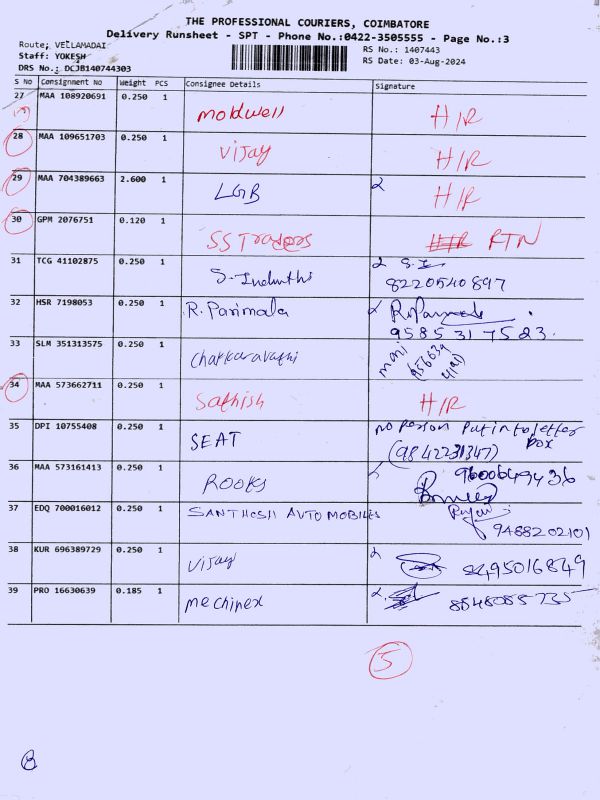 THE PROFESSIONAL COURIERS, COIMBATORE
Delivery Runsheet - SPT - Phone No.:0422-3505555 - Page No.:3
Route: VELLAMADAI
RS No.: 1407443
Staff: YOKESH
RS Date: 03-Aug-2024
DRS No.: DCJB140744303
S No Consignment No Weight PCS Consignee Details Signature
27 MAA 108920691 0.250 1 moldwell H/R
28 MAA 109651703 0.250 1 Vijay H/R
29 MAA 704389663 2.600 1 LGB H/R
30 GPM 2076751 0.120 1 SS Traders RTN
31 TCG 41102875 0.250 1 S. Induthi S.I
8220540897
32 HSR 7198053 0.250 1 R. Parimala
9585317523
33 SLM 351313575 0.250 1 Chakkaravathi mani
34 MAA 573662711 0.250 1 Sathish H/R
35 DPI 10755408 0.250 1 SEAT no person put into letter box
(9842231347)
36 MAA 573161413 0.250 1 ROOKS 9600649436
37 EDQ 700016012 0.250 1 SANTHOSH AUTO MOBILES
9488202101
38 KUR 696389729 0.250 1 Vijay 8495016849
39 PRO 16630639 0.185 1 mechinex
5